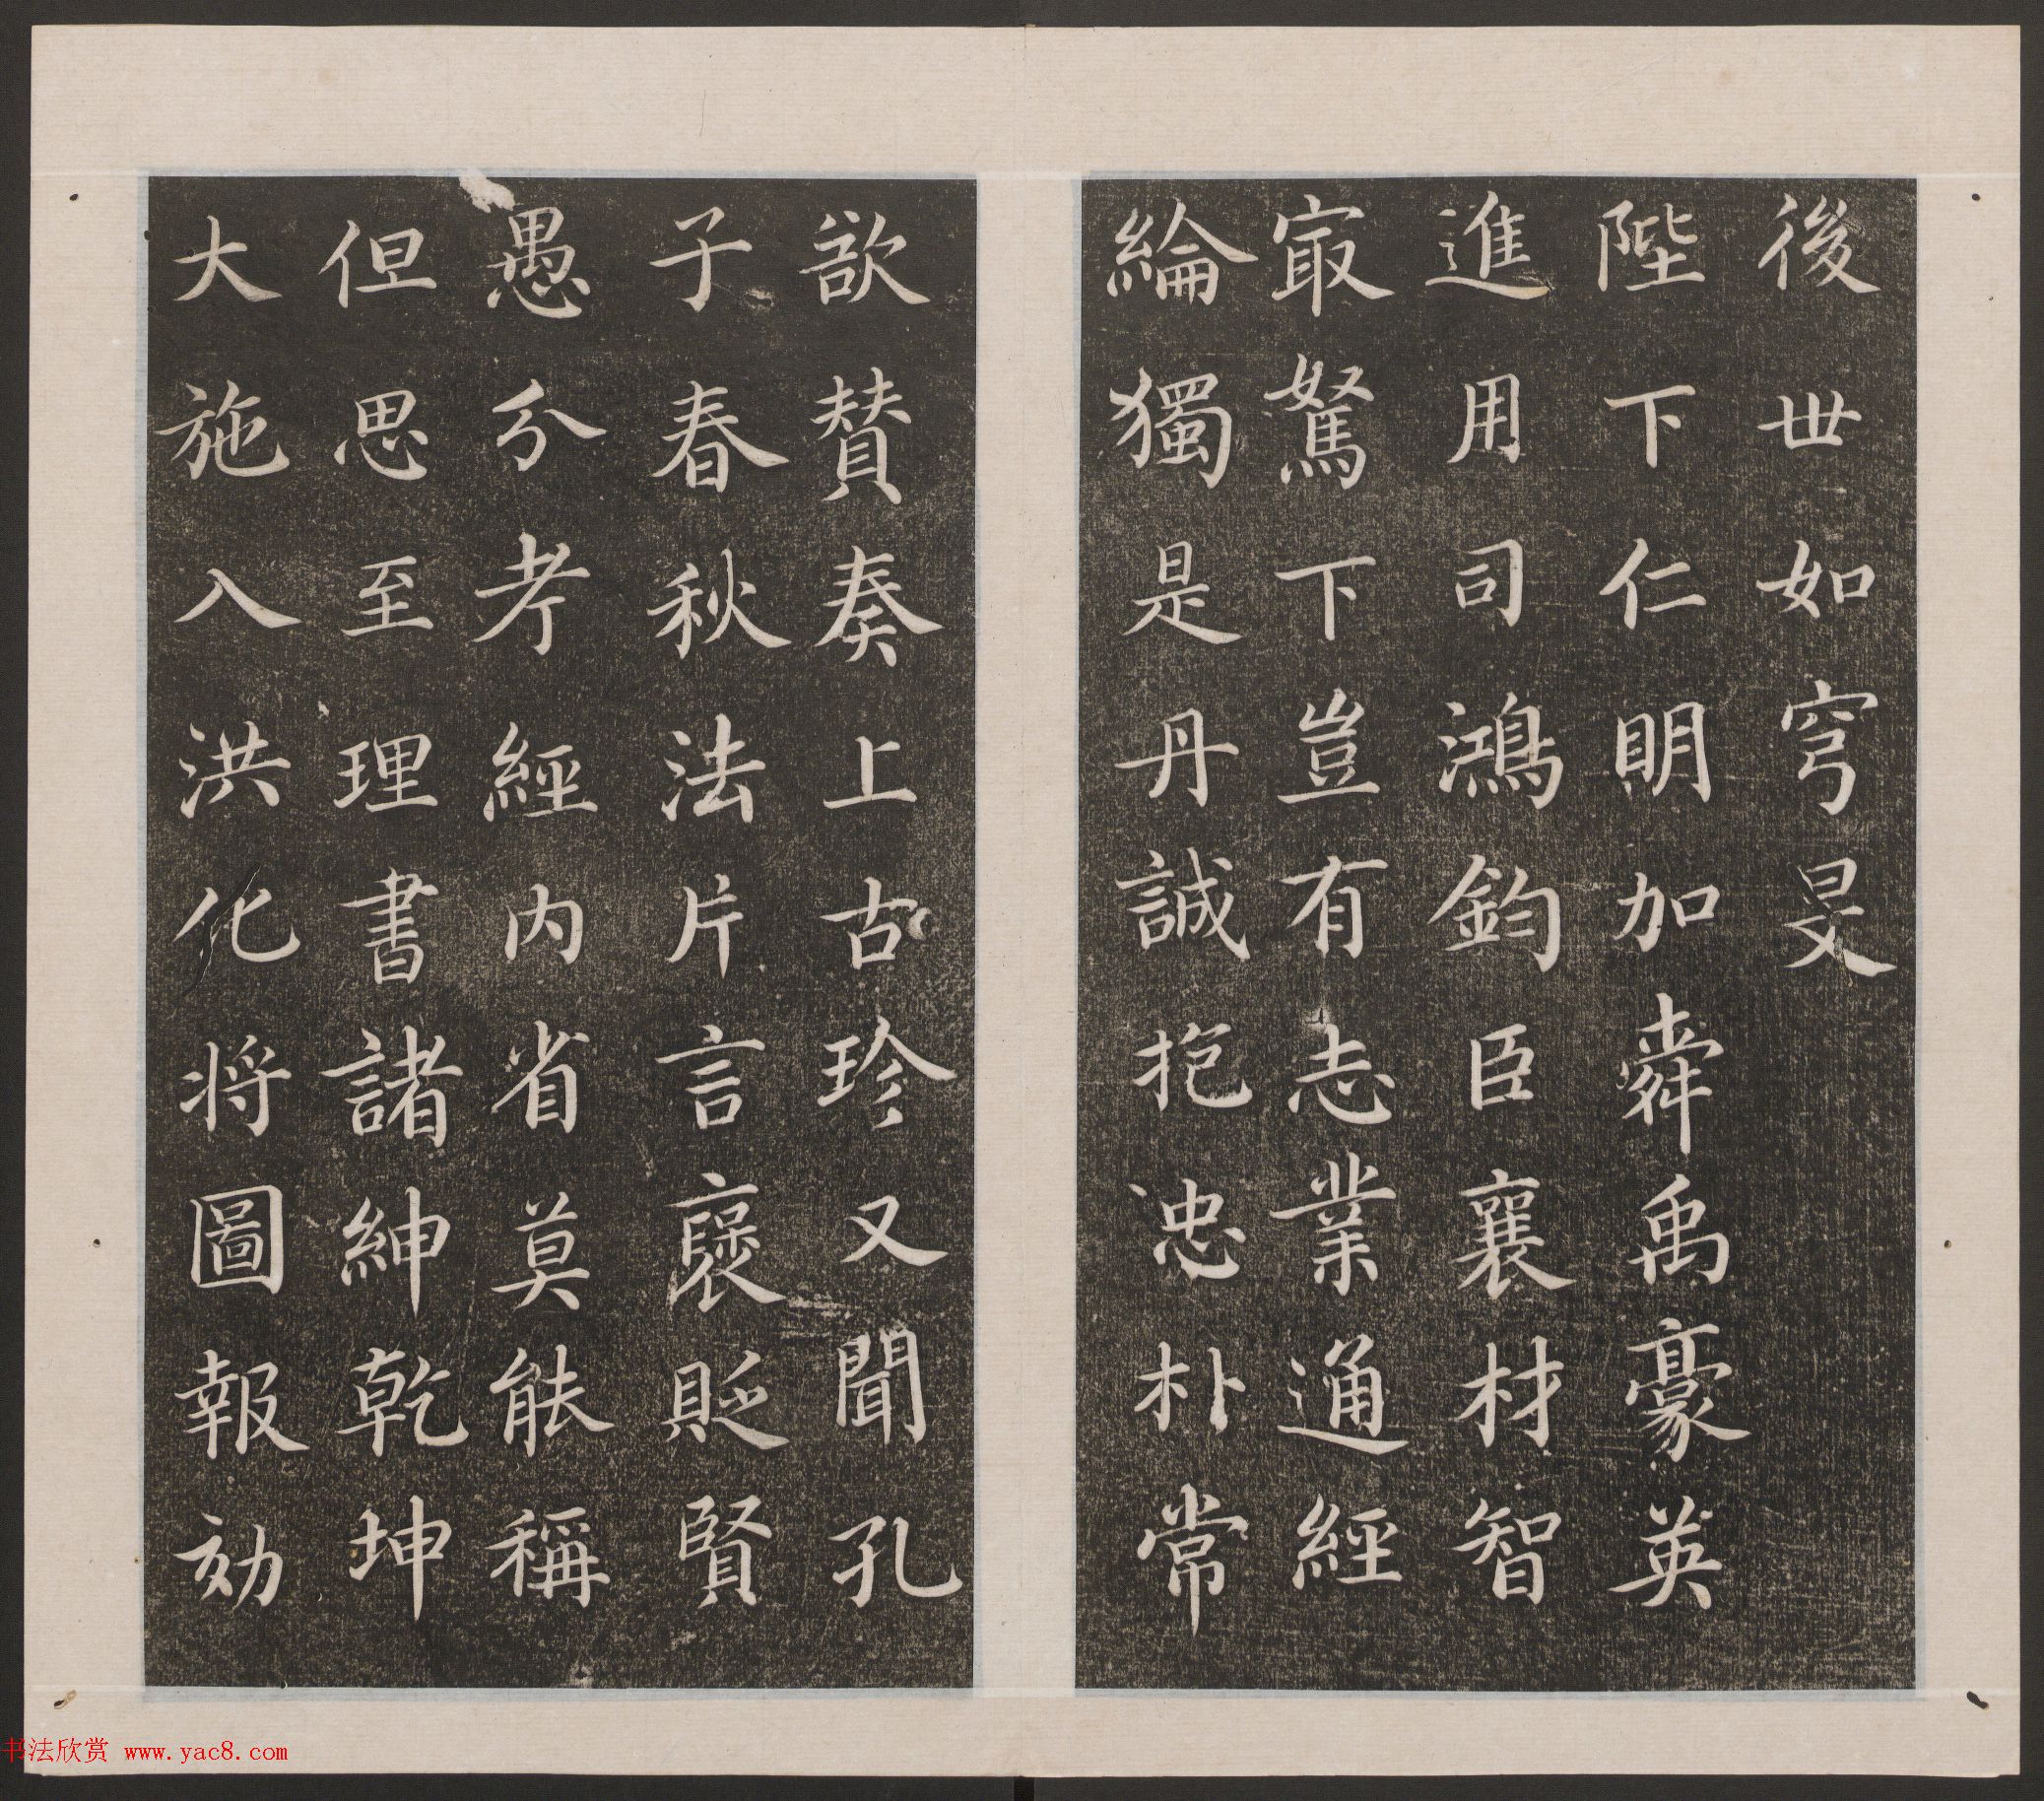 後世如穹旻
陛下仁明加舜禹豪英
進用司鴻鈞臣襄材智
㝡駑下豈有志業通經
綸獨是丹誠抱忠朴常
欲賛奏上古珍又聞孔
子春秋法片言襃貶賢
愚分考經內省莫能稱
但思至理書諸紳乾坤
大施入洪化将圖報効
书法欣赏 www.yac8.com